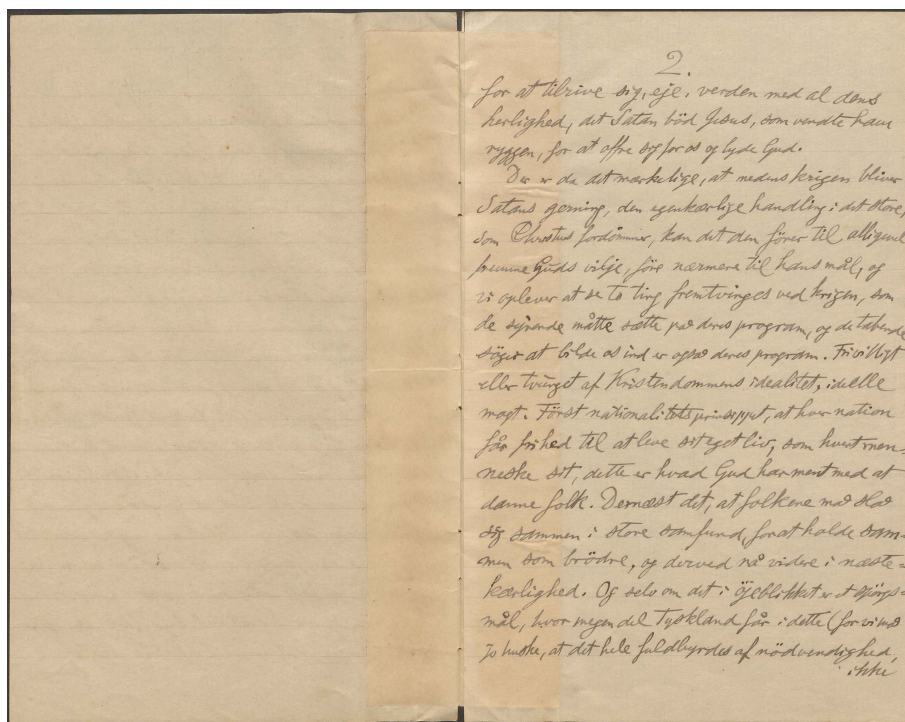 2.
for at tilrive sig, eje, verden med al dens
herlighed, det Satan böd Jesus, som vendte ham
ryggen, for at offre sig for os og lyde Gud.
Der er da det mærkelige, at medens krigen bliver
Satans gerning, den egenkærlige handling i det store,
som Christus fordömmer, kan det den förer til alligevel
fremme Guds vilje, före nærmere til hans mål, og
vi oplever at de to ting fremtvinges ved krigen, som
de sejrende måtte sætte paa deres program, og de tabende
söger at bilde os ind er ogsaa deres program. Frivilligt
eller tvunget af Kristendommens idealitet, idielle
magt. Först nationalitetsprincippet, at hver nation
får frihed til at leve sit eget liv, som hvert men-
neske sit, dette er hvad Gud har ment med at
danne folk. Dernæst det, at folkene maa slaa
sig sammen i store samfund, for at holde sam-
men som brödre, og derved nå videre i næste-
kærlighed. Og selv om det i öjeblikket er et spörgs-
mål, hvor megen del Tyskland får i dette (for vi maa
jo huske, at det hele fuldbyrdes af nödvendighed,
ikke